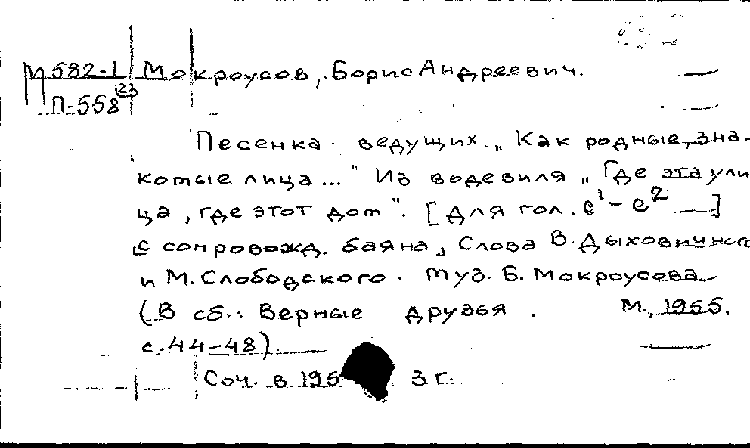 М 582-1 Мокроусов, Борис Андреевич.
П-558 23
Песенка ведущих. „Как родные, зна-
комые лица..." Из водевиля „Где эта ули
ца, где этот дом". [Для гол. e¹-e²
с сопровожд. баяна] Слова В. Дыховичного
и М. Слободского. Муз. Б. Мокроусова
(В сб.: Верные друзья. М., 1955.
с. 44-48).
Соч. в 195 3 г.